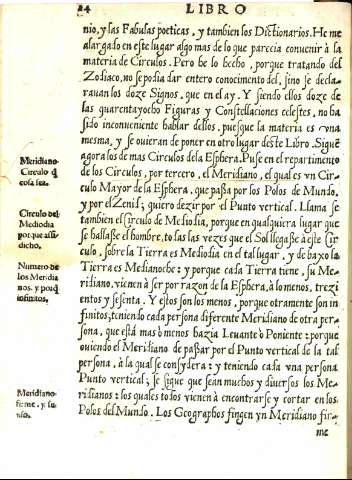 24 LIBRO
nio, y las Fabulas poeticas, y tambien los Dictionarios. He me
alargado en este lugar algo mas de lo que parecia convenir à la
materia de Circulos. Pero he lo hecho, porque tratando del
Zodiaco, no se podia dar entero conocimento del, sino se decla-
ravan los doze Signos, que en el ay. Y siendo ellos doze de
las quarentayocho Figuras y Constellaciones celestes, no ha
sido inconueniente hablar dellos, puesque la materia es vna
mesma, y se ouieran de poner en otro lugar deste Libro. Sigue
agora los de mas Circulos dela Esphera. Puse en el repartimento
de los Circulos, por tercero, el Meridiano, el qual es vn Cir-
culo Mayor de la Esphera, que passa por los Polos de Mundo,
y por el Zenit; quiero dezir por el Punto vertical. Llama se
tambien el circulo de Mediodia, porque en qualquiera lugar que
se hallasse el hombre, todas las vezes que el Sol llegasse à este Cir
culo, sobre la Tierra es Mediodia en tal lugar, y de baxo la
Tierra es Medianoche: y porque cada Tierra tiene, su Me-
ridiano, vienen à ser por razon de la Esphera, à lo menos, trezi
entos y sesenta. Y estos son los menos, porque otramente son in
finitos, teniendo cada persona diferente Meridiano de otra per-
sona, que està mas ò menos hazia Leuante ò Poniente: porque
ouiendo el Meridiano de passar por el Punto vertical de la tal
persona, à la qual se consydera: y teniendo cada vna persona
Punto vertical; se sigue que sean muchos y diuersos los Me-
ridianos: los quales todos vienen à encontrarse y cortar en los
Polos del Mundo. Los Geographos fingen yn Meridiano fir-
me
Meridiano
Circulo q̃
cosa sea.
Circulo del
Mediodia
porque assi
dicho.
Numero de
los Meridia
nos. y porq̃
infinitos,
Meridiano
firme. y su